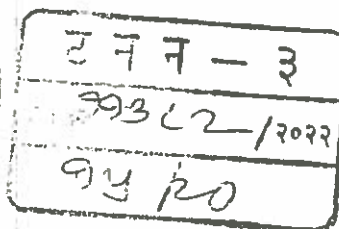 ट न न - ३
१३८२/२०२२
१५/२०